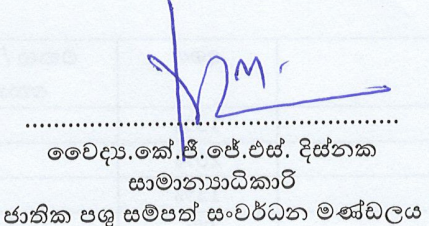 වෛද්‍ය.කේ.ජී.ජේ.එස්. දිස්නක
සාමාන්‍යාධිකාරි
ජාතික පශු සම්පත් සංවර්ධන මණ්ඩලය